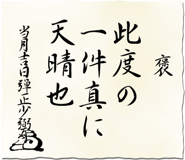 褒
此度の
一件真に
天晴也
当月吉日弾正少弼